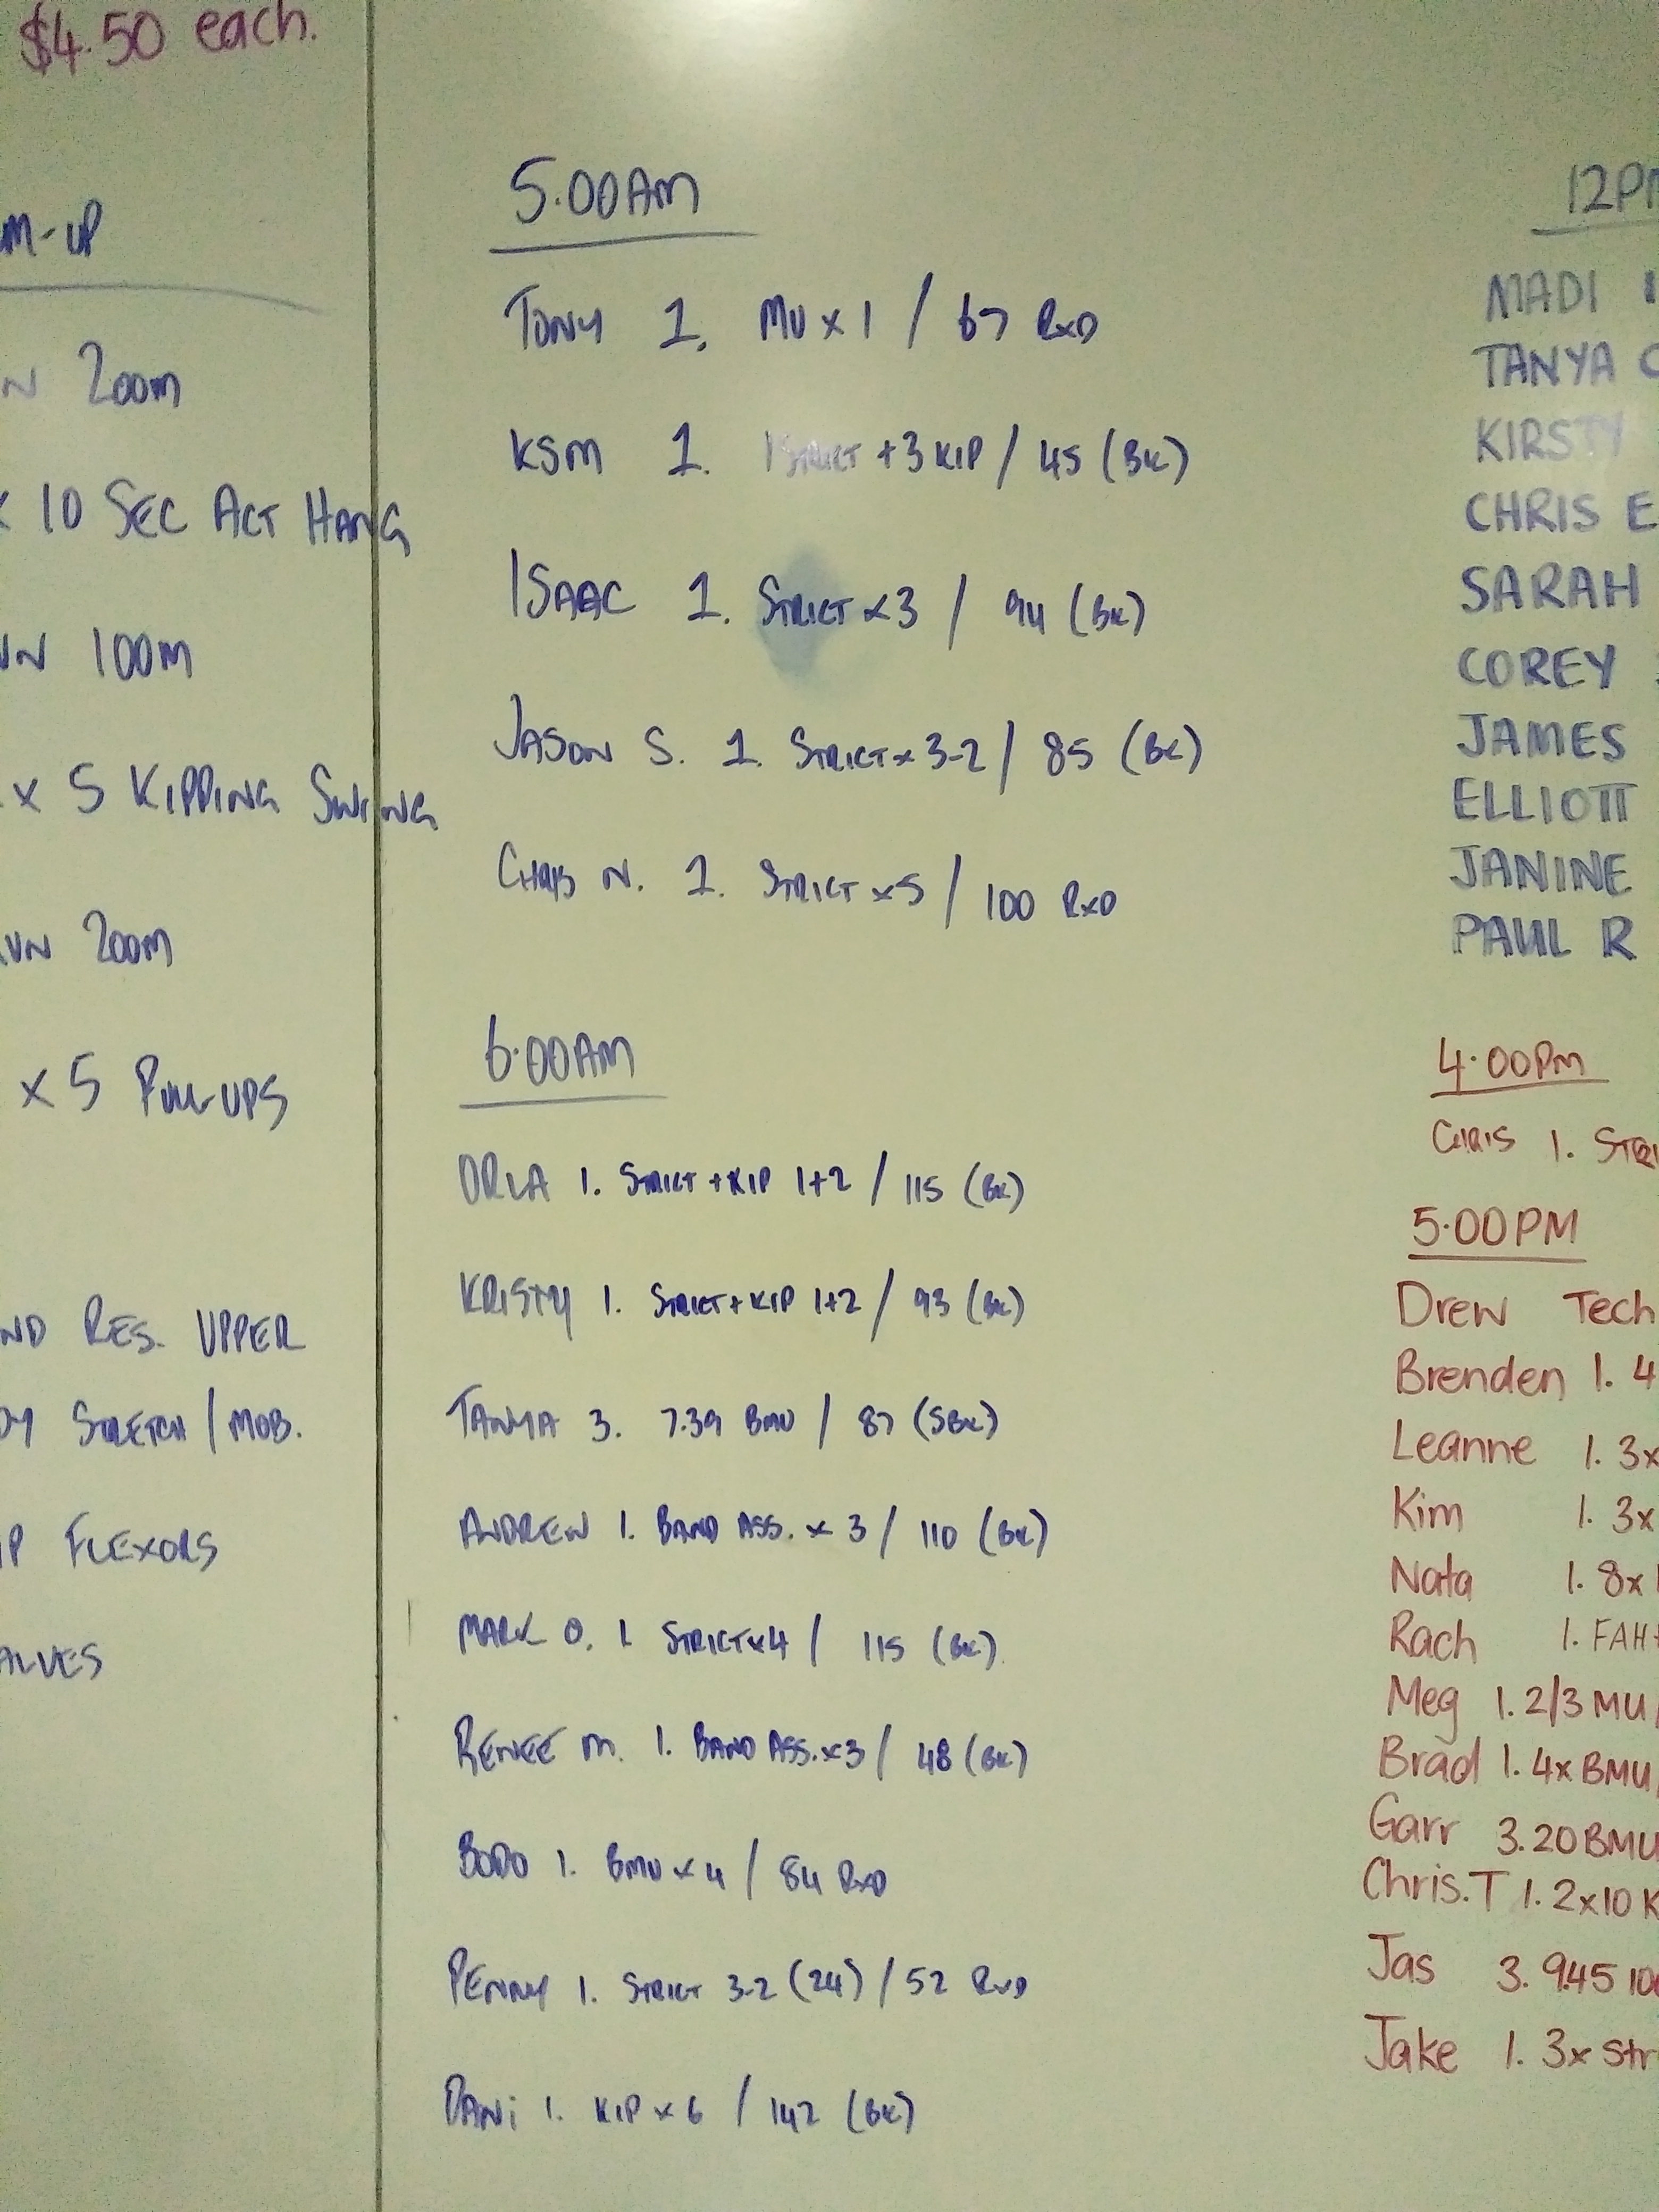 $4.50 each.
M-UP
N 200m
x 10 SEC ACT HANG
UN 100m
x 5 KIPPING SWING
UN 200m
x 5 PULL-UPS
ND RES. UPPER
DY STRETCH / MOB.
IP FLEXORS
ALVES
5.00AM
TONY 1. MU x 1 / 67 RXD
KSM 1. 1 STRICT + 3 KIP / 45 (BK)
ISAAC 1. STRICT x 3 / 94 (BK)
JASON S. 1. STRICT x 3-2 / 85 (BK)
CHRIS N. 1. STRICT x 5 / 100 RXD
6.00AM
ORLA 1. STRICT + KIP 1+2 / 115 (BK)
KRISTY 1. STRICT + KIP 1+2 / 93 (BK)
TANYA 3. 7.39 BMU / 87 (SBK)
ANDREW 1. BAND ASS. x 3 / 110 (BK)
MARK O. 1. STRICT x 4 / 115 (BK)
RENEE M. 1. BAND ASS. x 3 / 48 (BK)
BODO 1. BMU x 4 / 84 RXD
PENNY 1. STRICT 3-2 (24) / 52 RXD
DANi 1. KIP x 6 / 142 (BK)
12PM
MADI 1
TANYA C
KIRSTY
CHRIS E
SARAH
COREY
JAMES
ELLIOTT
JANINE
PAUL R
4.00PM
CHRIS 1. STRI
5.00PM
Drew Tech
Brenden 1. 4
Leanne 1. 3x
Kim 1. 3x
Nata 1. 8x
Rach 1. FAH+
Meg 1. 2/3 MU/
Brad 1. 4x BMU/
Garr 3. 20 BMU
Chris.T 1. 2x10 K
Jas 3. 9.45 10
Jake 1. 3x Str